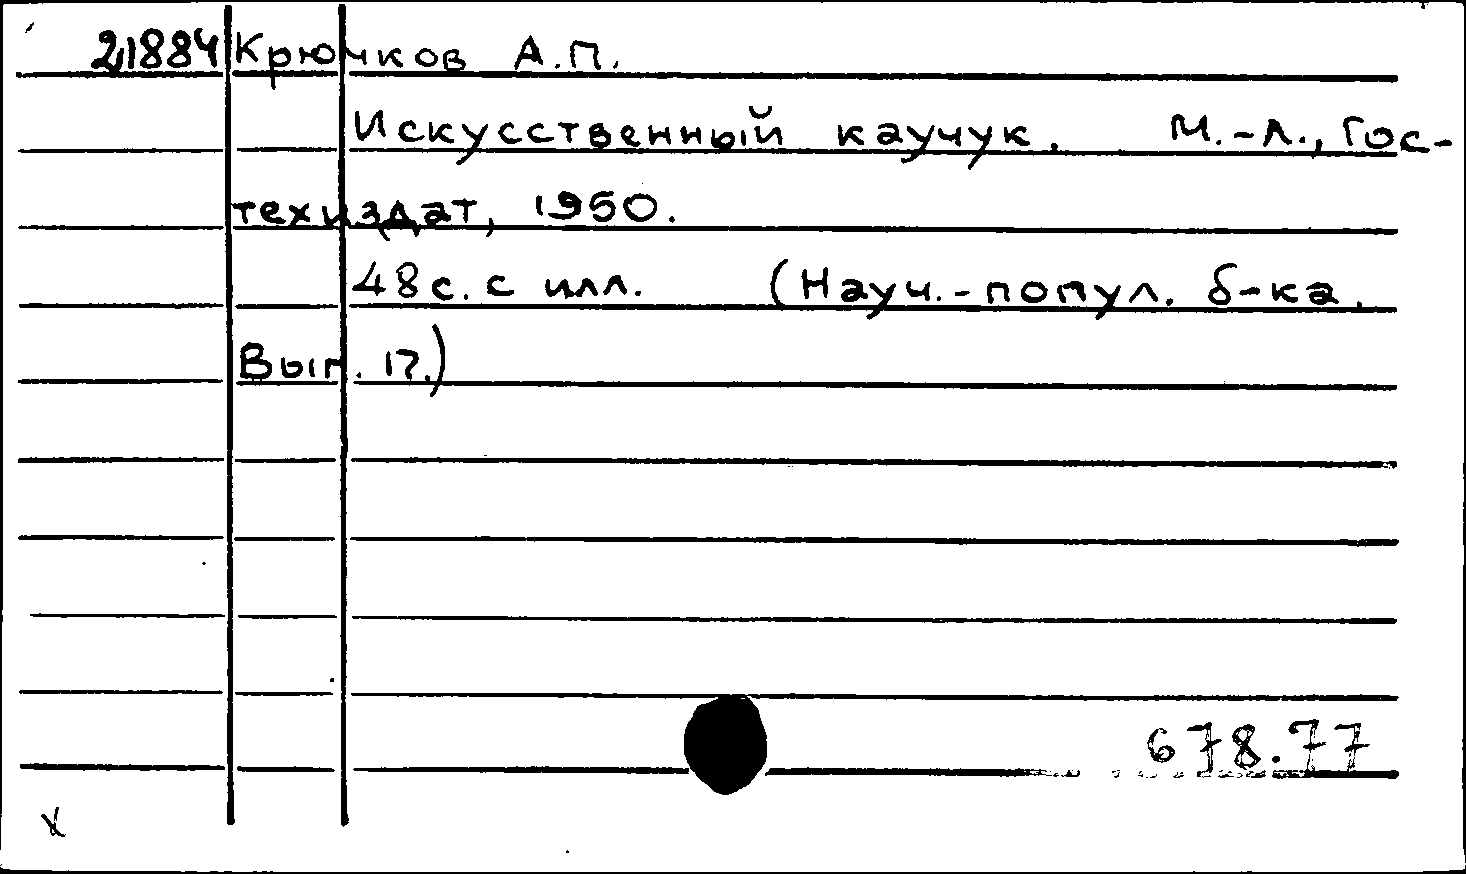 21884 Крючков А.П.
Искусственный каучук. М.-Л., Гос-
техиздат, 1950.
48 с. с илл. (Науч.-попул. б-ка.
Вып. 17.)
678.77